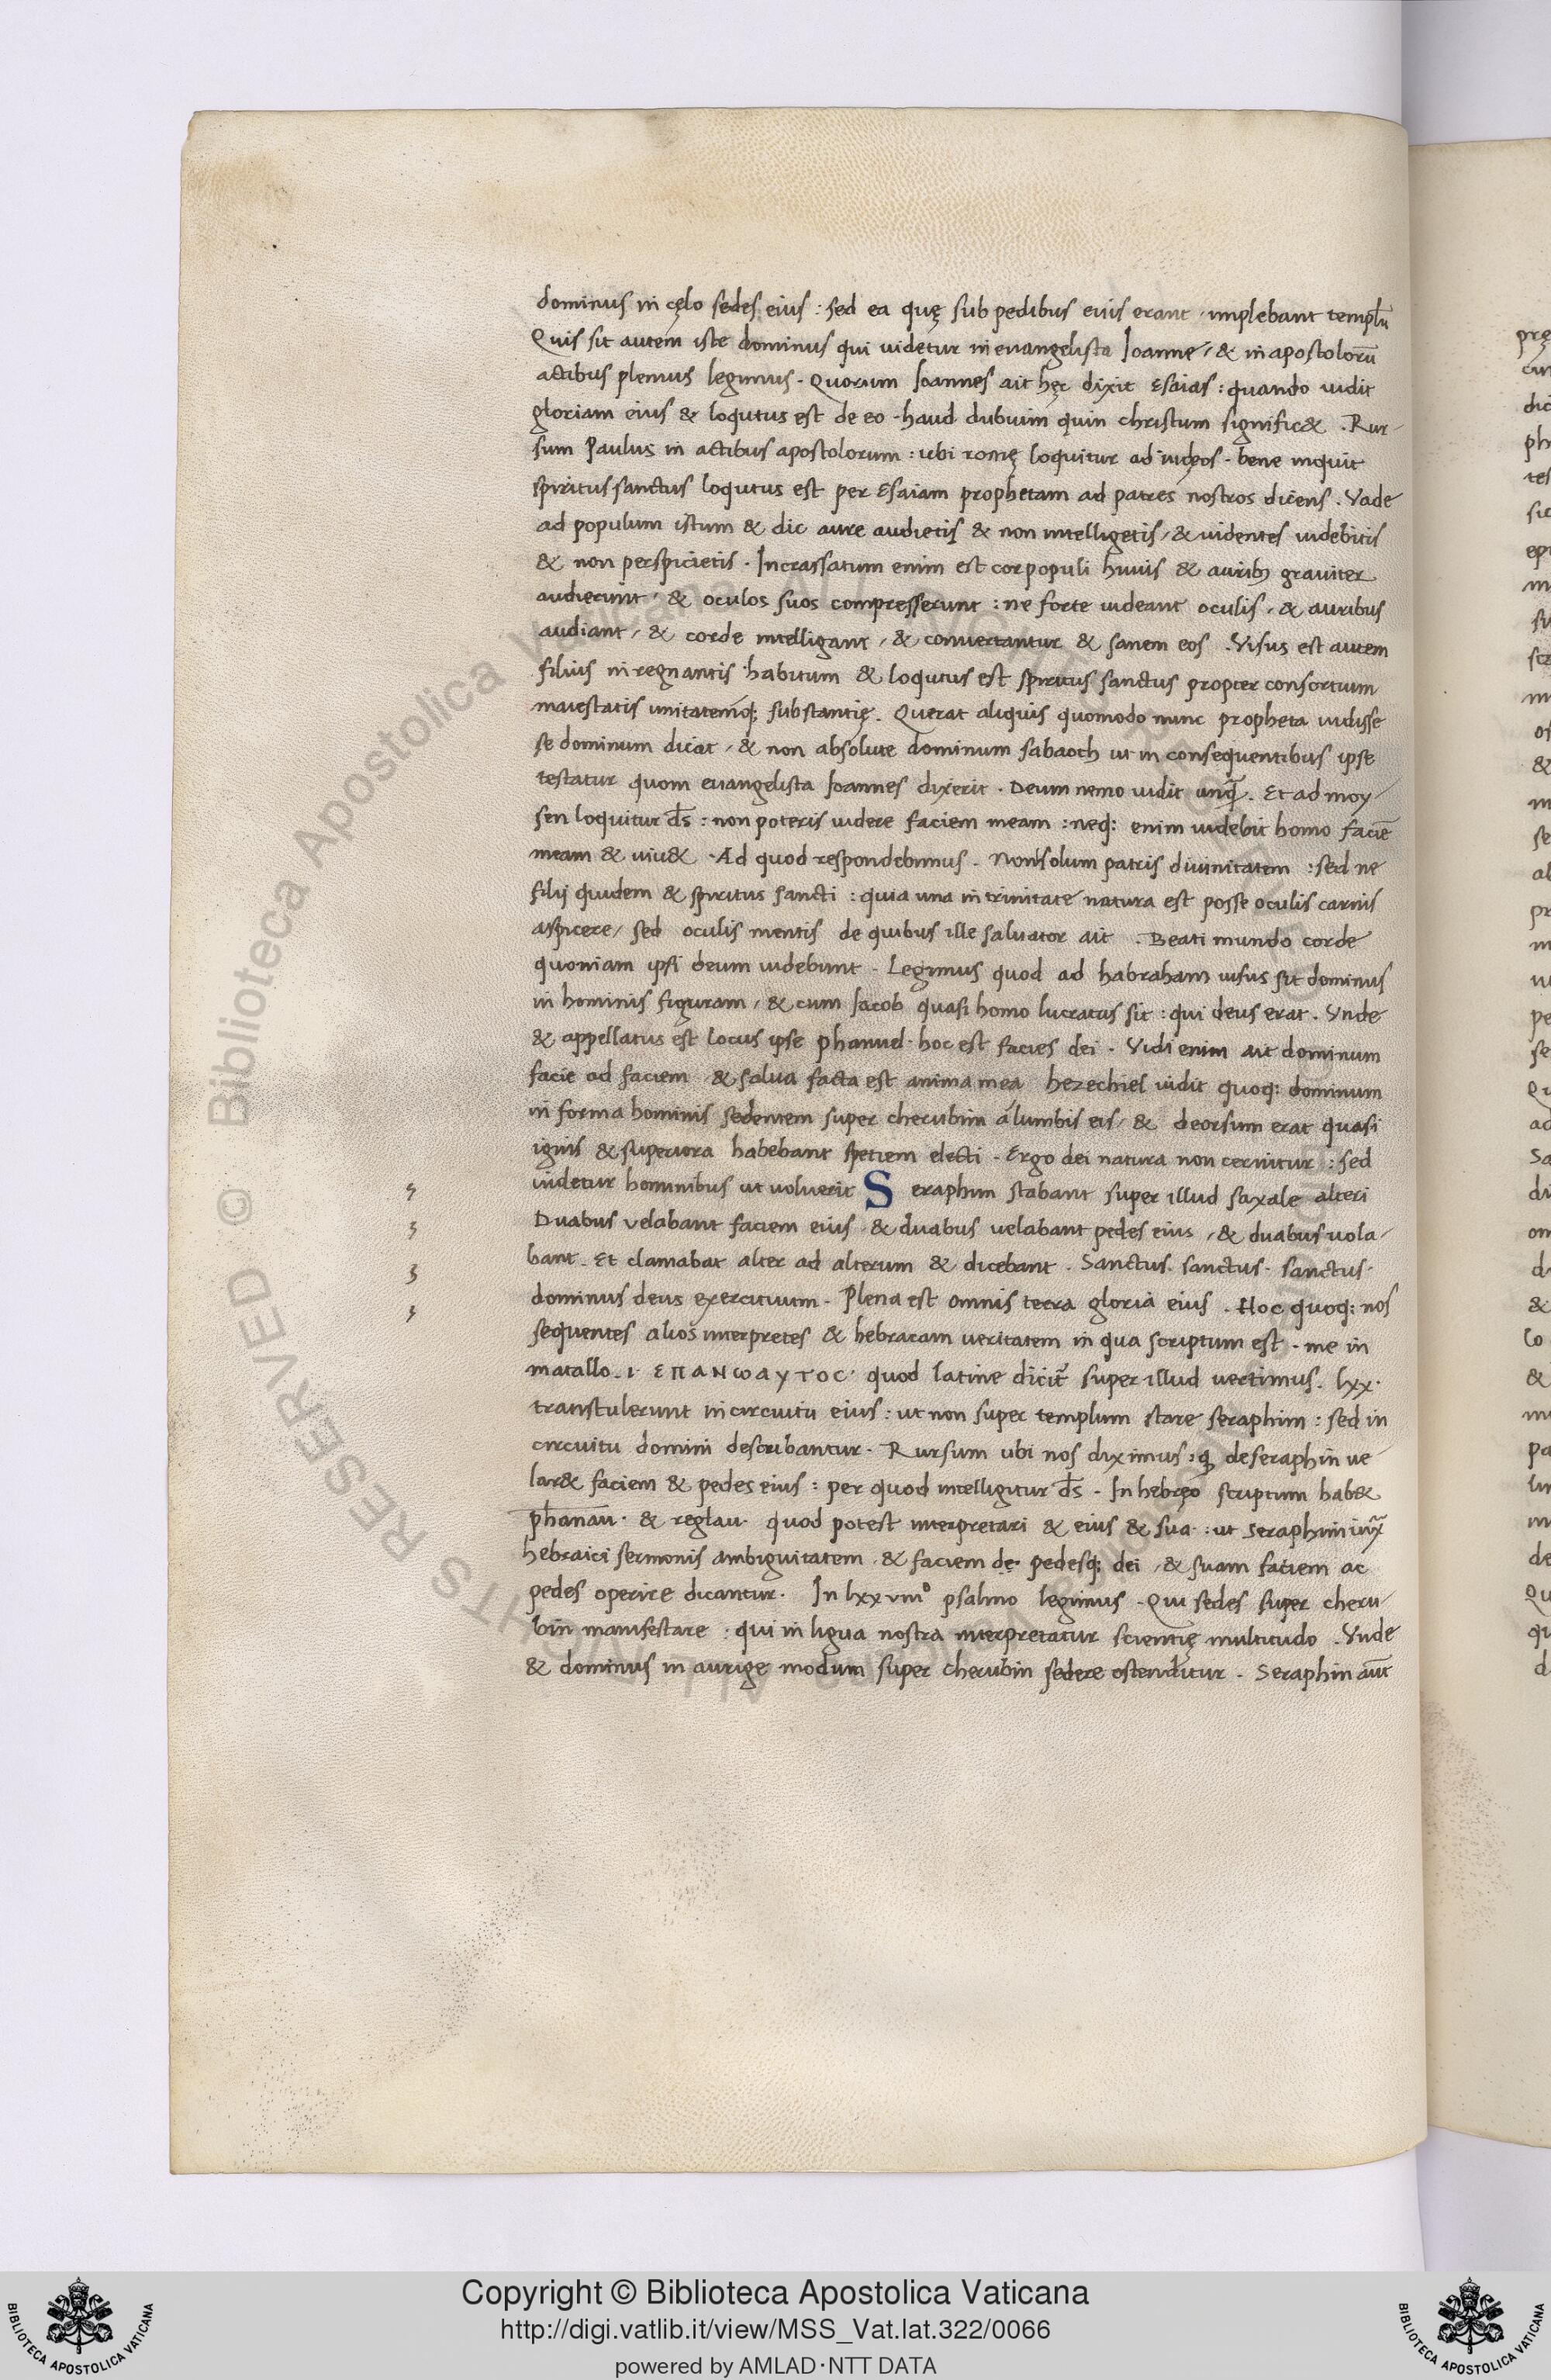 dominus in cęlo sedes eius : sed ea quę sub pedibus eius erant implebant templū
Quis sit autem iste dominus qui uidetur in euangelista Ioanne / & in apostolorū
actibus plenius legimus . Quorum Ioannes ait hęc dixit Esaias : quando uidit
gloriam eius & loqutus est de eo . haud dubium quin christum signific& . Rur-
sum Paulus in actibus apostolorum : ubi romę loquitur ad iudęos . bene inquit
spiritus sanctus loqutus est per Esaiam prophetam ad patres nostros dicens . Vade
ad populum istum & dic aure audietis & non intelligetis / & uidentes uidebitis
& non perspicietis . Incrassatum enim est cor populi huius & aurib; grauiter
audierunt / & oculos suos compresserunt : ne forte uideant oculis / & auribus
audiant / & corde intelligant / & conuertantur & sanem eos . Visus est autem
filius in regnantis habitum & loqutus est spiritus sanctus propter consortium
maiestatis unitatemq; substantię . Querat aliquis quomodo nunc propheta uidisse
se dominum dicat / & non absolute dominum sabaoth ut in consequentibus ipse
testatur quom euangelista Ioannes dixerit . Deum nemo uidit unq̃ . Et ad moy-
sen loquitur d̄s : non poteris uidere faciem meam : neq; enim uidebit homo faciē
meam & uiu& . Ad quod respondebimus . Non solum patris diuinitatem : sed ne
filij quidem & spiritus sancti : quia una in trinitate natura est posse oculis carnis
aspicere / sed oculis mentis de quibus ille saluator ait . Beati mundo corde
quoniam ipsi deum uidebunt . Legimus quod ad habraham uisus sit dominus
in hominis figuram / & cum Iacob quasi homo lucratus sit : qui deus erat . Vnde
& appellatus est locus ipse phanuel . hoc est facies dei . Vidi enim ait dominum
facie ad faciem & salua facta est anima mea hezechiel uidit quoq; dominum
in forma hominis sedentem super cherubim á lumbis eis / & deorsum erat quasi
ignis & superiora habebant spetiem electi . Ergo dei natura non cernitur : sed
uidetur hominibus ut uoluerit Seraphim stabant super illud saxale alteri
Duabus velabant faciem eius & duabus uelabant pedes eius / & duabus uola-
bant . Et clamabat alter ad alterum & dicebant . Sanctus . sanctus . sanctus .
dominus deus exercituum . Plena est omnis terra gloria eius . Hoc quoq; nos
sequentes alios interpretes & hebraicam ueritatem in qua scriptum est . me in
matallo . ι . ΕΠΑΝωΑΥΤΟC . quod latine dicit̃ super illud uertimus . lxx .
transtulerunt in circuitu eius : ut non super templum stare seraphim : sed in
circuitu domini describantur . Rursum ubi nos diximus : ꝙ de seraphin ue-
lar& faciem & pedes eius : per quod intelligitur d̄s . In hebręo scriptum hab&
phanau . & reglau . quod potest interpretari & eius & sua . : ut seraphin iux̃
hebraici sermonis ambiguitatem . & faciem dę . pedesq; dei / & suam fatiem ac
pedes operire dicantur . In lxxviiiº psalmo legimus . Qui sedes super cheru-
bin manifestare : qui in ligua nostra interpretatur scientię multitudo . Vnde
& dominus in aurige modum super cherubin sedere ostenditur . Seraphin aūt
Copyright © Biblioteca Apostolica Vaticana
http://digi.vatlib.it/view/MSS_Vat.lat.322/0066
powered by AMLAD·NTT DATA